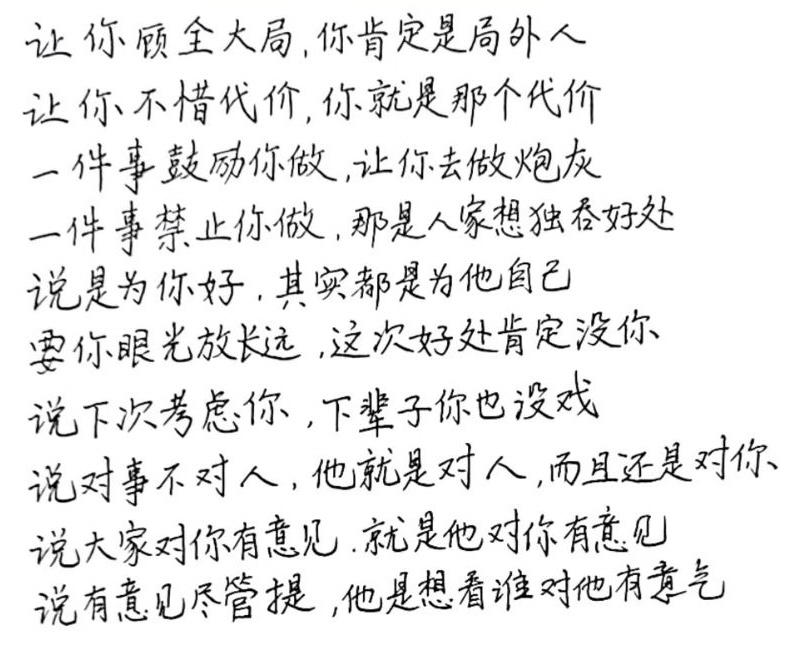 让你顾全大局,你肯定是局外人
让你不惜代价,你就是那个代价
一件事鼓励你做,让你去做炮灰
一件事禁止你做,那是人家想独吞好处
说是为你好,其实都是为他自己
要你眼光放长远,这次好处肯定没你
说下次考虑你,下辈子你也没戏
说对事不对人,他就是对人,而且还是对你
说大家对你有意见.就是他对你有意见
说有意见尽管提,他是想看谁对他有意气